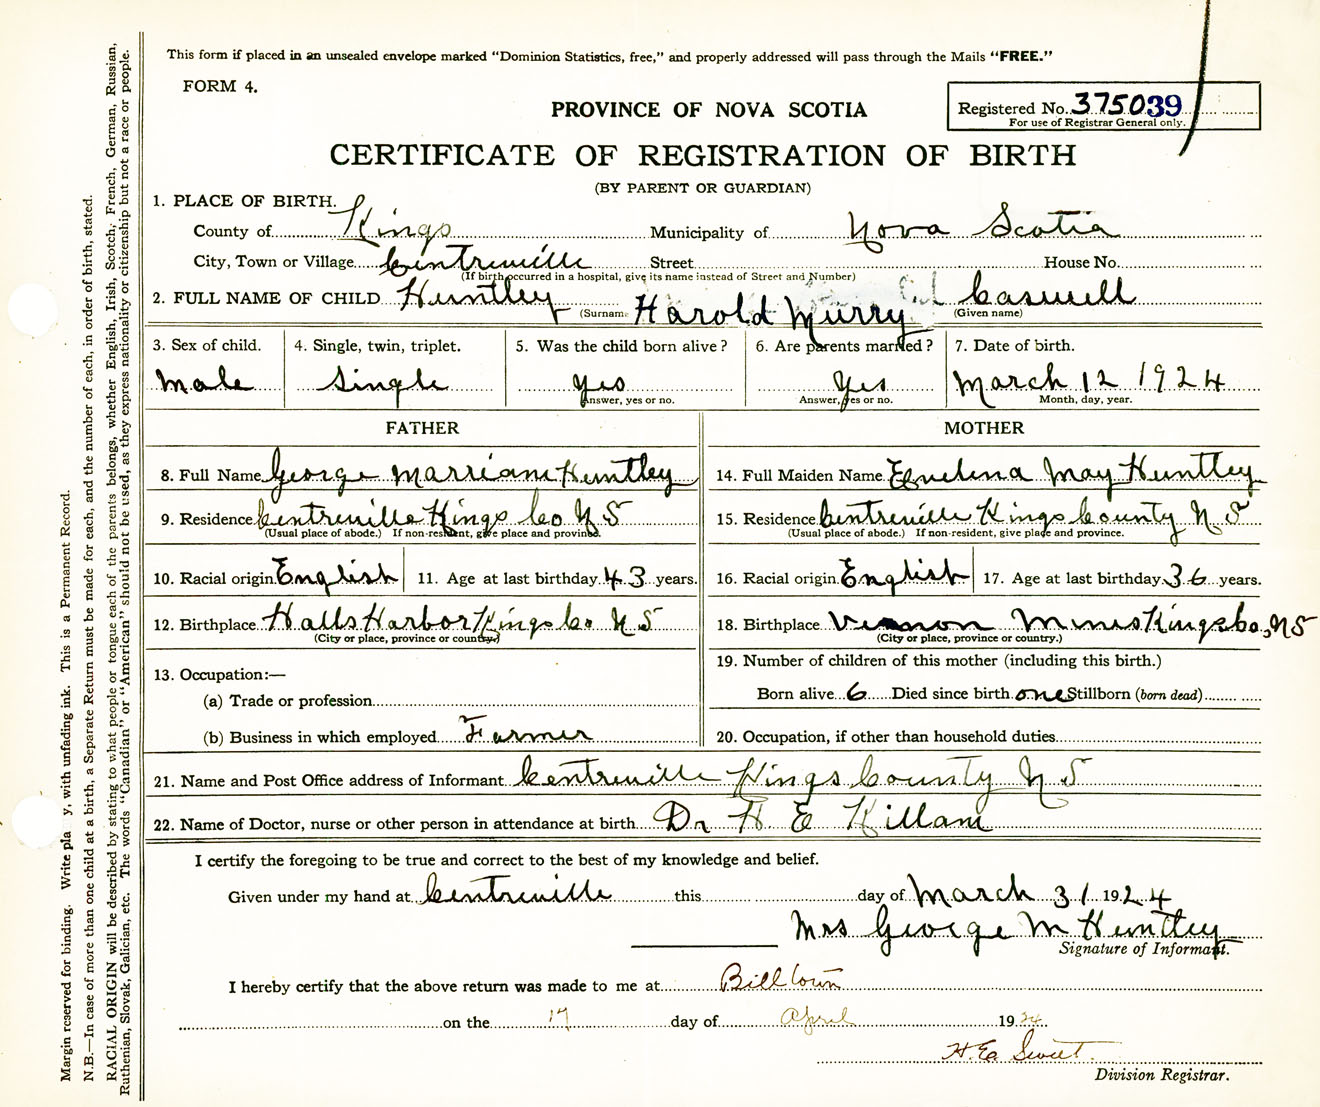 This form if placed in an unsealed envelope marked "Dominion Statistics, free," and properly addressed will pass through the Mails "FREE."
FORM 4.
PROVINCE OF NOVA SCOTIA
Registered No. 375039
For use of Registrar General only.
CERTIFICATE OF REGISTRATION OF BIRTH
(BY PARENT OR GUARDIAN)
1. PLACE OF BIRTH.
County of Kings Municipality of Nova Scotia
City, Town or Village Centreville Street House No.
(If birth occurred in a hospital, give its name instead of Street and Number)
2. FULL NAME OF CHILD Huntley Harold Murry Caswell
(Surname (Given name)
3. Sex of child. 4. Single, twin, triplet. 5. Was the child born alive? 6. Are parents married? 7. Date of birth.
Male Single yes Yes March 12 1924
Answer, yes or no. Answer, yes or no. Month, day, year.
FATHER MOTHER
8. Full Name George Marriam Huntley 14. Full Maiden Name Evelina May Huntley
9. Residence Centreville Kings Co N S 15. Residence Centreville Kings County N S
(Usual place of abode.) If non-resident, give place and province. (Usual place of abode.) If non-resident, give place and province.
10. Racial origin English 11. Age at last birthday 43 years. 16. Racial origin English 17. Age at last birthday 36 years.
12. Birthplace Halls Harbor Kings Co N S 18. Birthplace Vernon Mines Kings Co, N S
(City or place, province or country.) (City or place, province or country.)
13. Occupation:— 19. Number of children of this mother (including this birth.)
(a) Trade or profession Born alive 6 Died since birth one Stillborn (born dead)
(b) Business in which employed Farmer 20. Occupation, if other than household duties
21. Name and Post Office address of Informant Centreville Kings County N S
22. Name of Doctor, nurse or other person in attendance at birth Dr H E Killam
I certify the foregoing to be true and correct to the best of my knowledge and belief.
Given under my hand at Centreville this day of March 31 1924
Mrs George M Huntley
Signature of Informant.
I hereby certify that the above return was made to me at Billtown
on the 17 day of April 1924
H. E. Sweet
Division Registrar.
Margin reserved for binding. Write pla y, with unfading ink. This is a Permanent Record.
N.B.—In case of more than one child at a birth, a Separate Return must be made for each, and the number of each, in order of birth, stated.
RACIAL ORIGIN will be described by stating to what people or tongue each of the parents belongs, whether English, Irish, Scotch, French, German, Russian,
Ruthenian, Slovak, Galician, etc. The words "Canadian" or "American" should not be used, as they express nationality or citizenship but not a race or people.